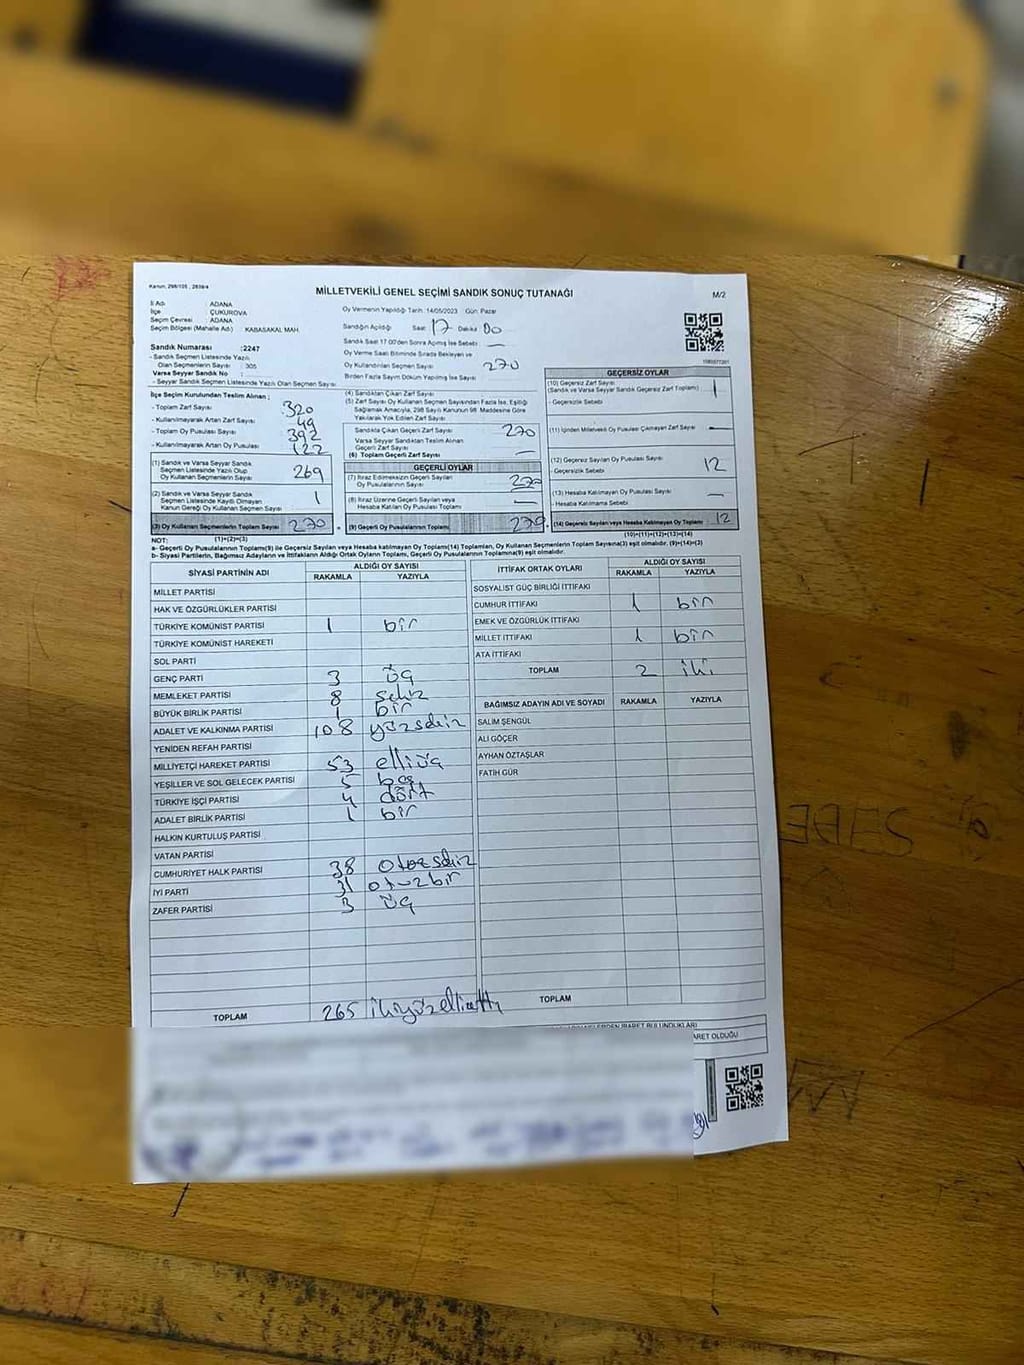 Kanun, 298/105 , 2839/4
MİLLETVEKİLİ GENEL SEÇİMİ SANDIK SONUÇ TUTANAĞI
M/2
İl Adı : ADANA
İlçe : ÇUKUROVA
Seçim Çevresi : ADANA
Seçim Bölgesi (Mahalle Adı) : KABASAKAL MAH.
Oy Vermenin Yapıldığı Tarih: 14/05/2023 Gün: Pazar
Sandığın Açıldığı Saat 17 Dakika 00
Sandık Saat 17:00'den Sonra Açılmış İse Sebebi : —
Oy Verme Saati Bitiminde Sırada Bekleyen ve
Oy Kullandırılan Seçmen Sayısı 270
Birden Fazla Sayım Döküm Yapılmış İse Sayısı :
Sandık Numarası :2247
- Sandık Seçmen Listesinde Yazılı
Olan Seçmenlerin Sayısı : 305
Varsa Seyyar Sandık No :
- Seyyar Sandık Seçmen Listesinde Yazılı Olan Seçmen Sayısı
İlçe Seçim Kurulundan Teslim Alınan ;
- Toplam Zarf Sayısı 320
- Kullanılmayarak Artan Zarf Sayısı 49
- Toplam Oy Pusulası Sayısı 392
- Kullanılmayarak Artan Oy Pusulası 122
(1) Sandık ve Varsa Seyyar Sandık
Seçmen Listesinde Yazılı Olup
Oy Kullanan Seçmenlerin Sayısı 269
(2) Sandık ve Varsa Seyyar Sandık
Seçmen Listesinde Kayıtlı Olmayan
Kanun Gereği Oy Kullanan Seçmen Sayısı 1
(3) Oy Kullanan Seçmenlerin Toplam Sayısı 270
(4) Sandıktan Çıkan Zarf Sayısı
(5) Zarf Sayısı Oy Kullanan Seçmen Sayısından Fazla İse, Eşitliği
Sağlamak Amacıyla, 298 Sayılı Kanunun 98. Maddesine Göre
Yakılarak Yok Edilen Zarf Sayısı
Sandıkta Çıkan Geçerli Zarf Sayısı 270
Varsa Seyyar Sandıktan Teslim Alınan
Geçerli Zarf Sayısı
(6) Toplam Geçerli Zarf Sayısı —
GEÇERLİ OYLAR
(7) İtiraz Edilmeksizin Geçerli Sayılan
Oy Pusulalarının Sayısı 270
(8) İtiraz Üzerine Geçerli Sayılan veya
Hesaba Katılan Oy Pusulası Toplamı —
(9) Geçerli Oy Pusulalarının Toplamı 270
GEÇERSİZ OYLAR
(10) Geçersiz Zarf Sayısı
(Sandık ve Varsa Seyyar Sandık Geçersiz Zarf Toplamı) 1
- Geçersizlik Sebebi
(11) İçinden Milletvekili Oy Pusulası Çıkmayan Zarf Sayısı —
(12) Geçersiz Sayılan Oy Pusulası Sayısı 12
- Geçersizlik Sebebi
(13) Hesaba Katılmayan Oy Pusulası Sayısı —
- Hesaba Katılmama Sebebi
(14) Geçersiz Sayılan veya Hesaba Katılmayan Oy Toplamı 12
NOT: (1)+(2)=(3) (10)+(11)+(12)+(13)=(14)
a- Geçerli Oy Pusulaları Toplamı(9) ile Geçersiz Sayılan veya Hesaba katılmayan Oy Toplamı(14) Toplamları, Oy Kullanan Seçmenlerin Toplam Sayısına(3) eşit olmalıdır. (9)+(14)=(3)
b- Siyasi Partilerin, Bağımsız Adayların ve İttifakların Aldığı Ortak Oyların Toplamı, Geçerli Oy Pusulalarının Toplamına(9) eşit olmalıdır.
SİYASİ PARTİNİN ADI ALDIĞI OY SAYISI
RAKAMLA YAZIYLA
MİLLET PARTİSİ
HAK VE ÖZGÜRLÜKLER PARTİSİ
TÜRKİYE KOMÜNİST PARTİSİ 1 bir
TÜRKİYE KOMÜNİST HAREKETİ
SOL PARTİ
GENÇ PARTİ 3 üç
MEMLEKET PARTİSİ 8 sekiz
BÜYÜK BİRLİK PARTİSİ 1 bir
ADALET VE KALKINMA PARTİSİ 108 yüzsekiz
YENİDEN REFAH PARTİSİ
MİLLİYETÇİ HAREKET PARTİSİ 53 elliüç
YEŞİLLER VE SOL GELECEK PARTİSİ 5 beş
TÜRKİYE İŞÇİ PARTİSİ 4 dört
ADALET BİRLİK PARTİSİ 1 bir
HALKIN KURTULUŞ PARTİSİ
VATAN PARTİSİ
CUMHURİYET HALK PARTİSİ 38 otuzsekiz
İYİ PARTİ 31 otuzbir
ZAFER PARTİSİ 3 üç
TOPLAM 265 ikiyüzellialtı
İTTİFAK ORTAK OYLARI ALDIĞI OY SAYISI
RAKAMLA YAZIYLA
SOSYALİST GÜÇ BİRLİĞİ İTTİFAKI
CUMHUR İTTİFAKI 1 bir
EMEK VE ÖZGÜRLÜK İTTİFAKI
MİLLET İTTİFAKI 1 bir
ATA İTTİFAKI
TOPLAM 2 iki
BAĞIMSIZ ADAYIN ADI VE SOYADI RAKAMLA YAZIYLA
SALİM ŞENGÜL
ALİ GÖÇER
AYHAN ÖZTAŞLAR
FATİH GÜR
TOPLAM
ARET OLDUĞU